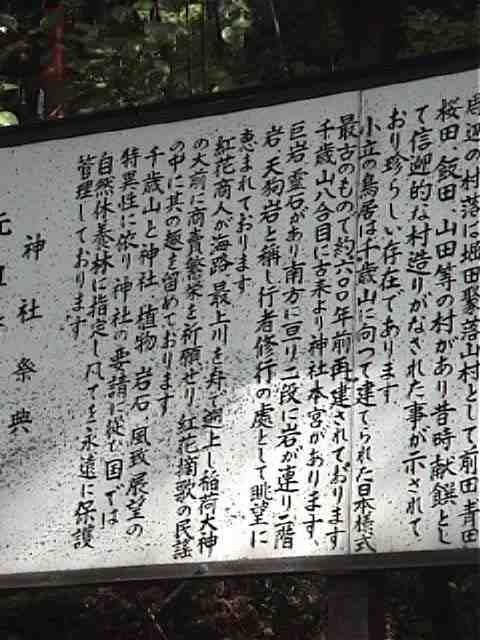 周辺の村落に堀田聚落山村として前田、青田
桜田、飯田、山田等の村があり昔時献饌とし
て信迎的な村造りがなされた事が示されて
おり珍らしい存在であります
小立の鳥居は千歳山に向つて建てられた日本様式
最古のもので約六〇〇年前再建されております
千歳山八合目に古来より神社本宮があります、
巨岩、霊石があり南方に亘り二段に岩が連り二階
岩、天狗岩と称し行者修行の處として眺望に
恵まれております
紅花商人が海路、最上川を舟で遡上し稲荷大神
の大前に商賣繁栄を祈願せり、紅花摘歌の民謡
の中に其の趣を留めております
千歳山と神社、植物、岩石、風致展望の
特異性に依り神社の要請に従ひ国では
自然休養林に指定し凡てを永遠に保護
管理しております
神社祭典
元旦